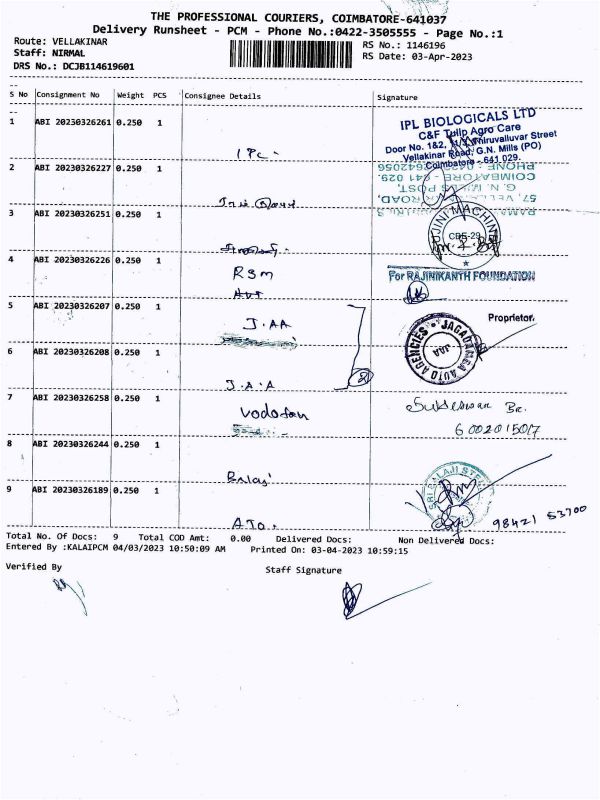 THE PROFESSIONAL COURIERS, COIMBATORE-641037
Delivery Runsheet - PCM - Phone No.:0422-3505555 - Page No.:1
Route: VELLAKINAR
RS No.: 1146196
Staff: NIRMAL
RS Date: 03-Apr-2023
DRS No.: DCJB114619601
S No Consignment No Weight PCS Consignee Details Signature
1 ABI 20230326261 0.250 1
IPL BIOLOGICALS LTD
C&F Tulip Agro Care
Door No. 1&2, Thiruvalluvar Street
Vellakinar Road, G.N. Mills (PO)
Coimbatore - 641 029.
IPL
2 ABI 20230326227 0.250 1
COIMBATORE - 641 029.
G. N. MILLS POST,
57,
3 ABI 20230326251 0.250 1
CBE-29
4 ABI 20230326226 0.250 1
RSM
For RAJINIKANTH FOUNDATION
5 ABI 20230326207 0.250 1
Proprietor.
J.AA
JAGADAMBA AUTO AGENCIES
JAA
6 ABI 20230326208 0.250 1
2
J.A.A
7 ABI 20230326258 0.250 1
Vodofon
6002015017
8 ABI 20230326244 0.250 1
Balaji
SRI BALAJI STEEL
9 ABI 20230326189 0.250 1
98421 53700
Total No. Of Docs: 9 Total COD Amt: 0.00 Delivered Docs: Non Delivered Docs:
Entered By :KALAIPCM 04/03/2023 10:50:09 AM Printed On: 03-04-2023 10:59:15
Verified By
Staff Signature